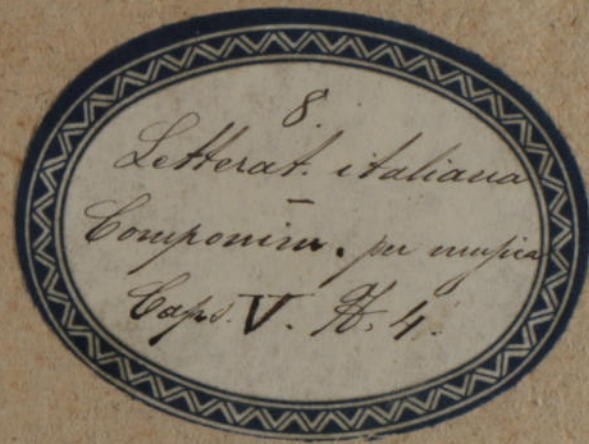 8.
Letterat. italiana
–
Componim. per musica
Caps. V. N. 4.